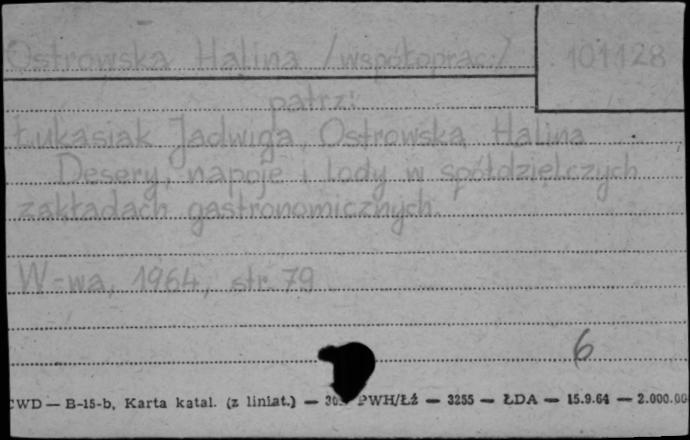 Ostrowska Halina /współoprac./ 101128
patrz:
Łukasiak Jadwiga, Ostrowska Halina
Desery, napoje i lody w spółdzielczych
zakładach gastronomicznych.
W-wa, 1964, str. 79
6
CWD — B-15-b, Karta katal. (z liniat.) — PWH/Łź — 3255 — ŁDA — 15.9.64 — 2.000.00